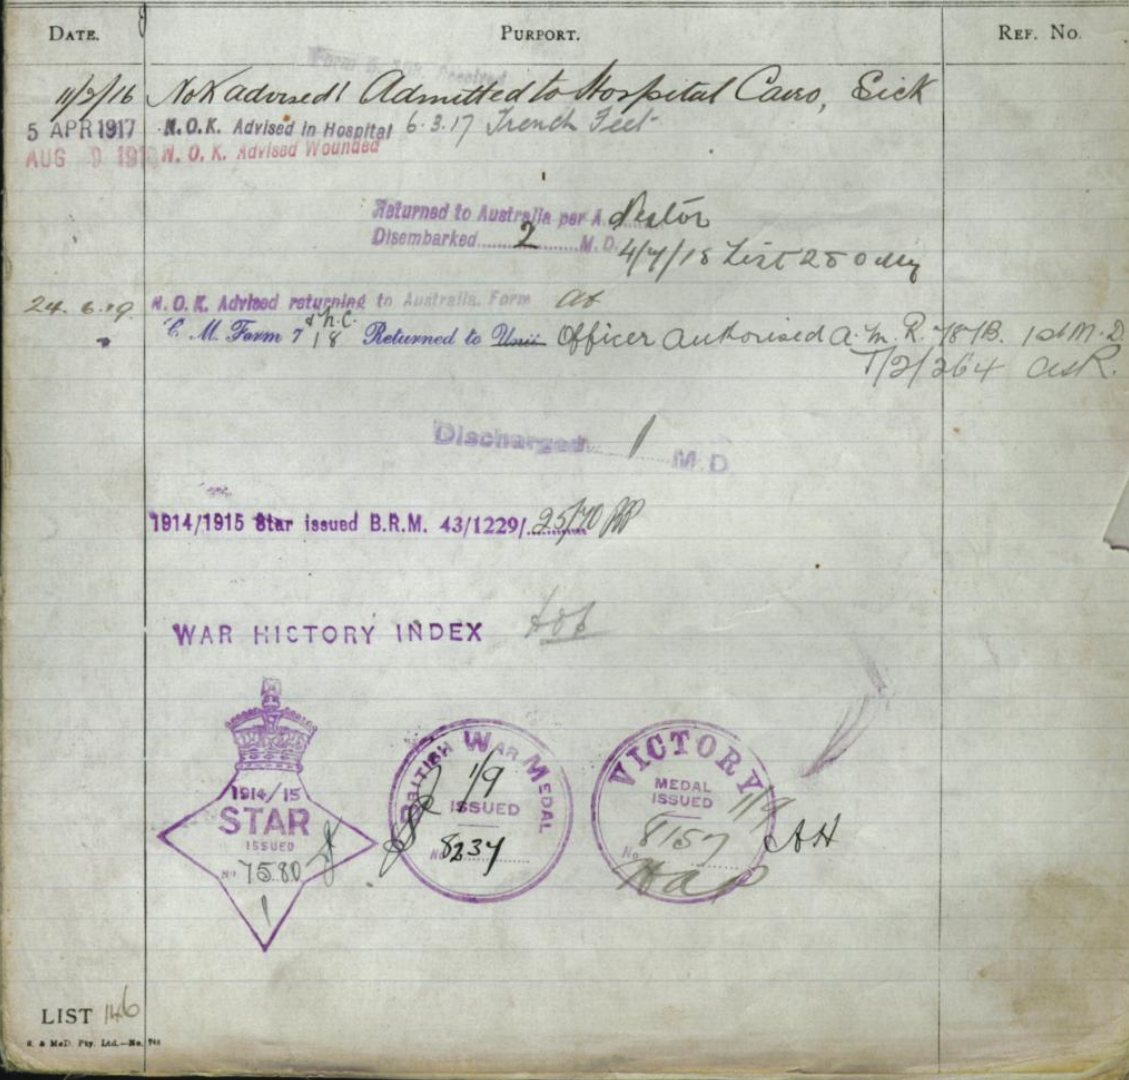 DATE. PURPORT. REF. NO.
11/2/16 NoK advised Admitted to Hospital Cairo, Sick
5 APR 1917 N.O.K. Advised in Hospital 6.3.17 Trench Feet
AUG N.O.K. Advised Wounded
Returned to Australia per A
Disembarked 2 M.D.
24.6.19 N.O.K. Advised returning to Australia. Form
C. M. Form 7 18 Returned to Unit Officer authorised 1st M.D.
T/2/264
Discharged 1 M.D
1914/1915 Star issued B.R.M. 43/1229/
WAR HISTORY INDEX
1914/15
STAR
ISSUED
No 7580
1
BRITISH WAR MEDAL
1/9
ISSUED
No 8234
VICTORY
MEDAL
ISSUED
1/9
No 8157
AH
LIST 146